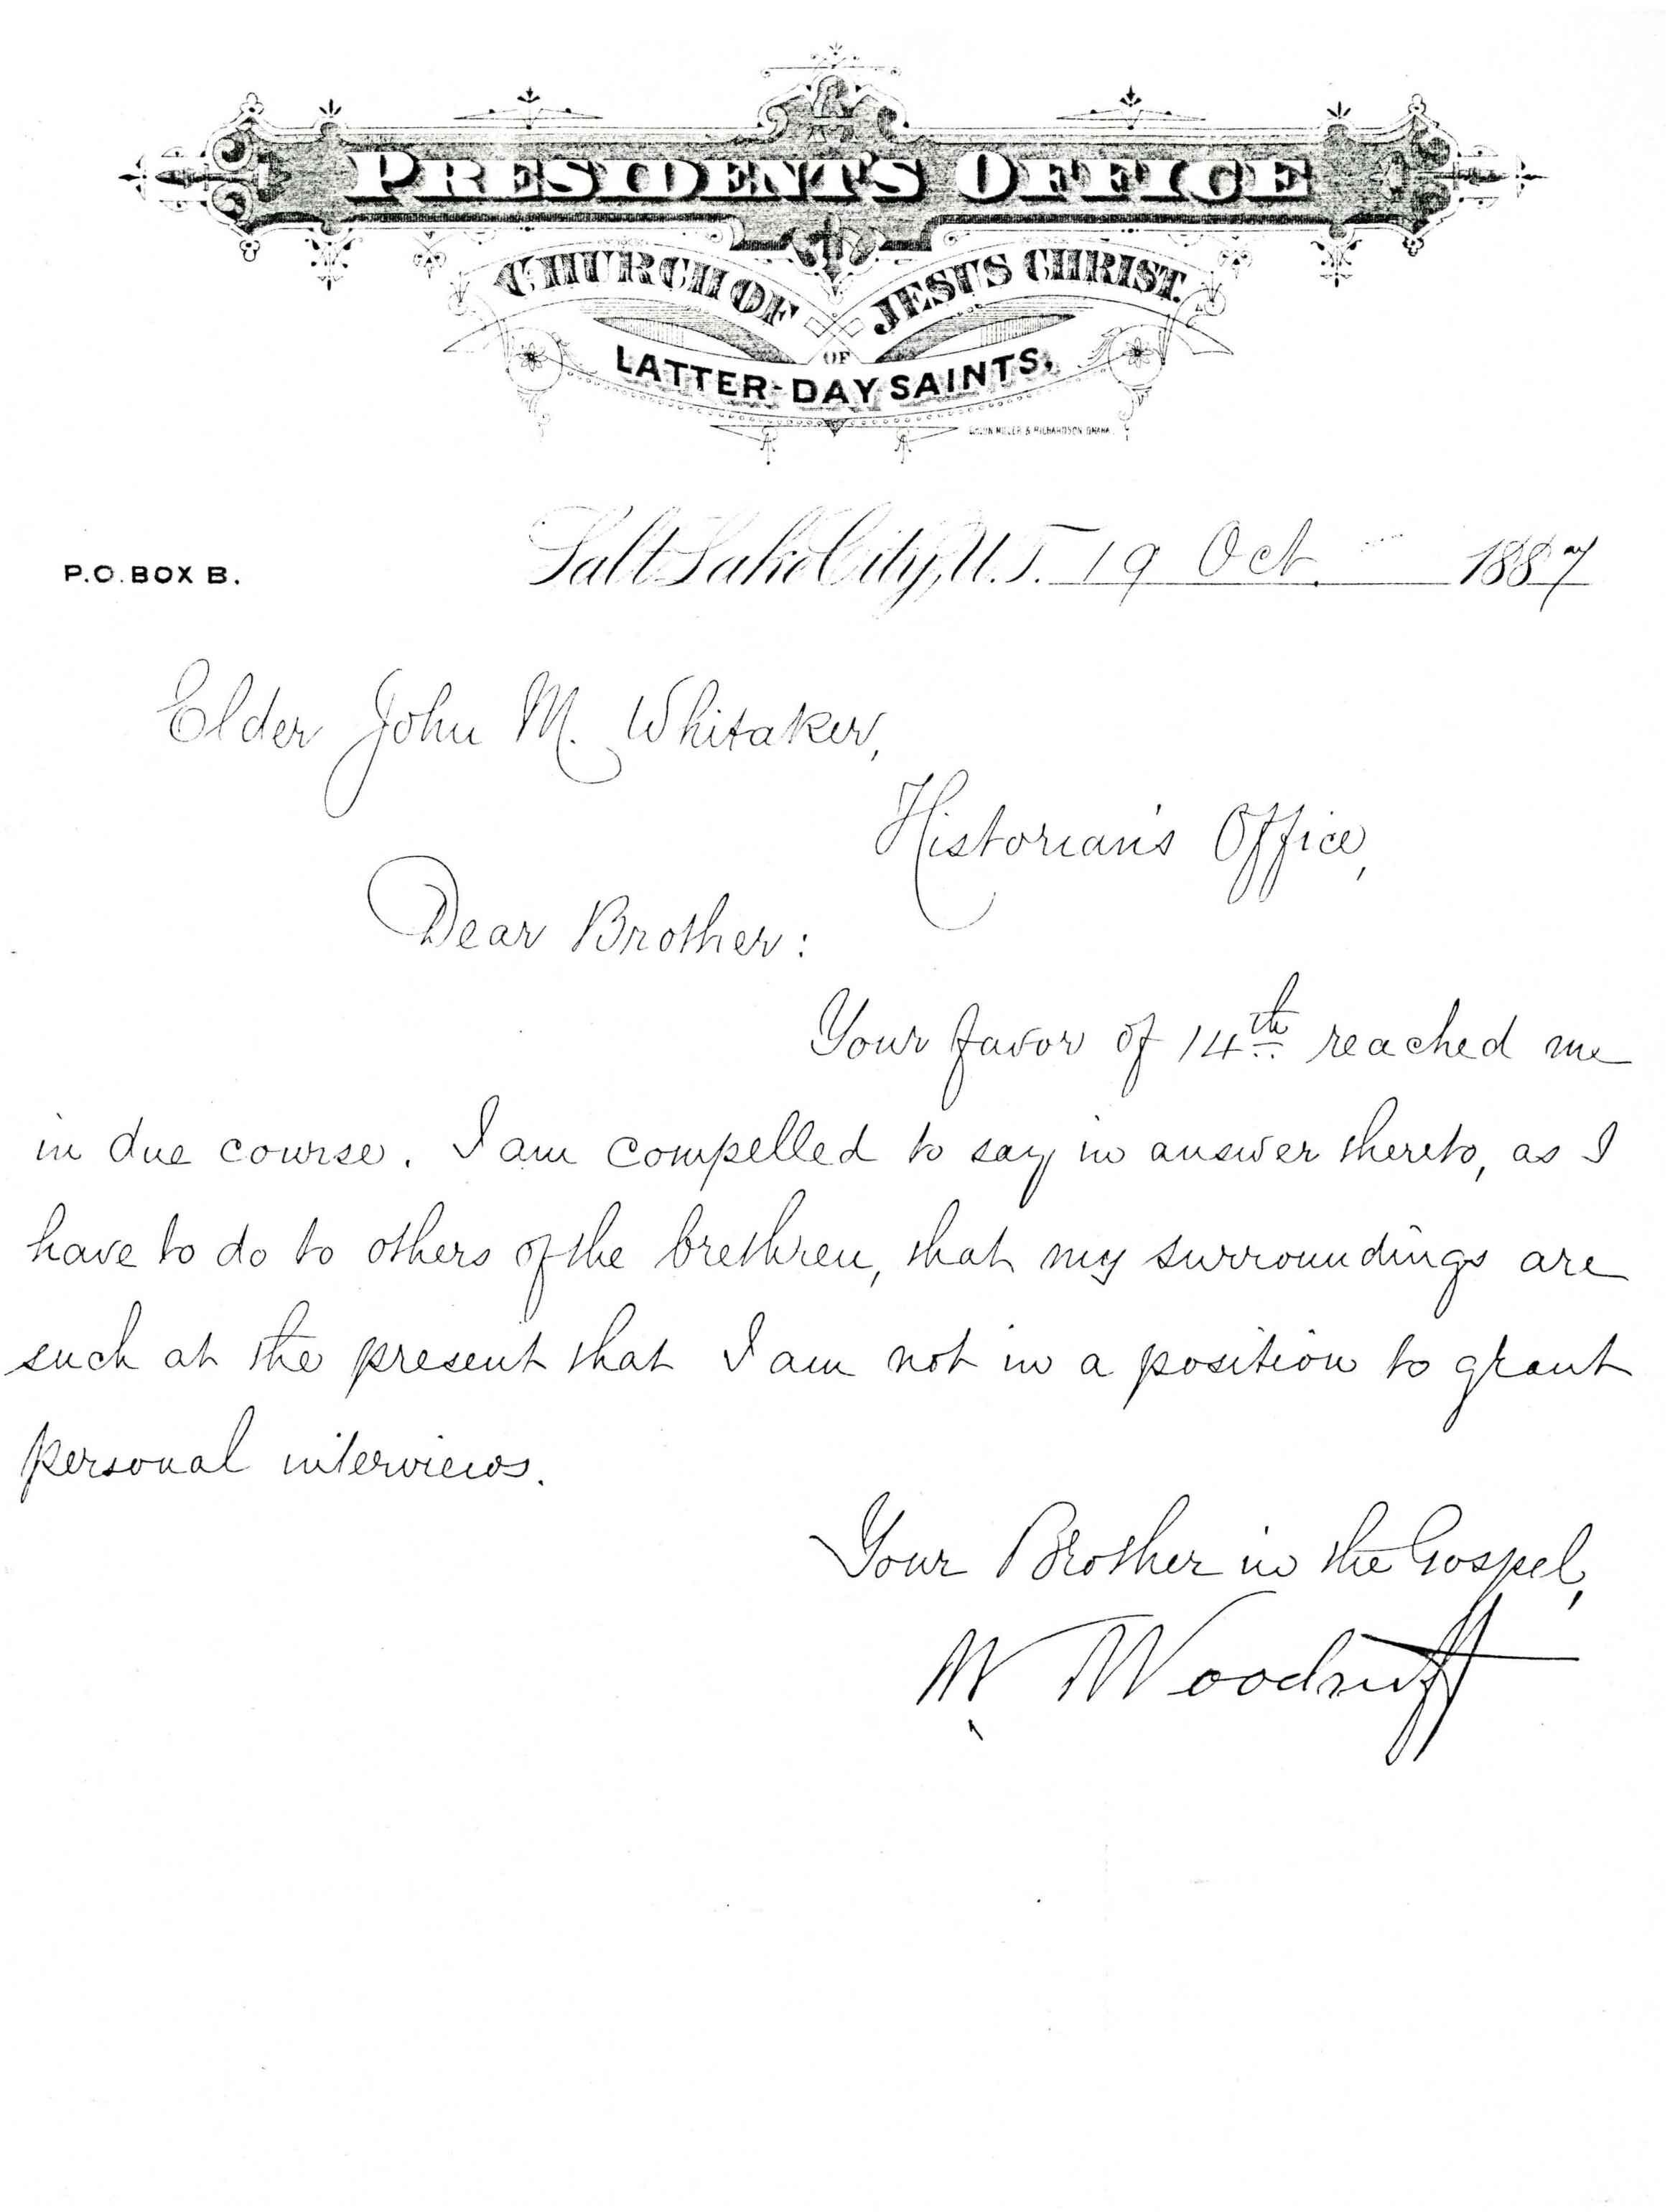 PRESIDENT'S OFFICE
CHURCH OF JESUS CHRIST
OF
LATTER-DAY SAINTS.
MILLER & RICHARDSON OMAHA.
P.O. BOX B.
Salt Lake City, U.T. 19 Oct. 1887
Elder John M. Whitaker,
Historian's Office,
Dear Brother:
Your favor of 14th reached me
in due course. I am compelled to say in answer thereto, as I
have to do to others of the brethren, that my surroundings are
such at the present that I am not in a position to grant
personal interviews.
Your Brother in the Gospel,
W. Woodruff